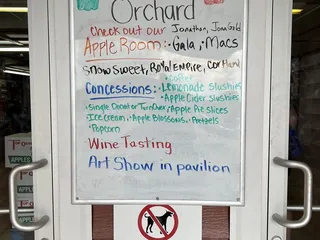 Orchard
Check out our Jonathan, Jona Gold
Apple Room:- Gala, Macs
Snow Sweet, Royal Empire, Cortland
Concessions:
• Coffee
• Lemonade slushies
• Apple Cider slushies
• Single Donut or Turnover • Apple Pie slices
• Ice cream, • Apple Blossoms, • Pretzels
• Popcorn
Wine Tasting
Art Show in pavilion
APPLES